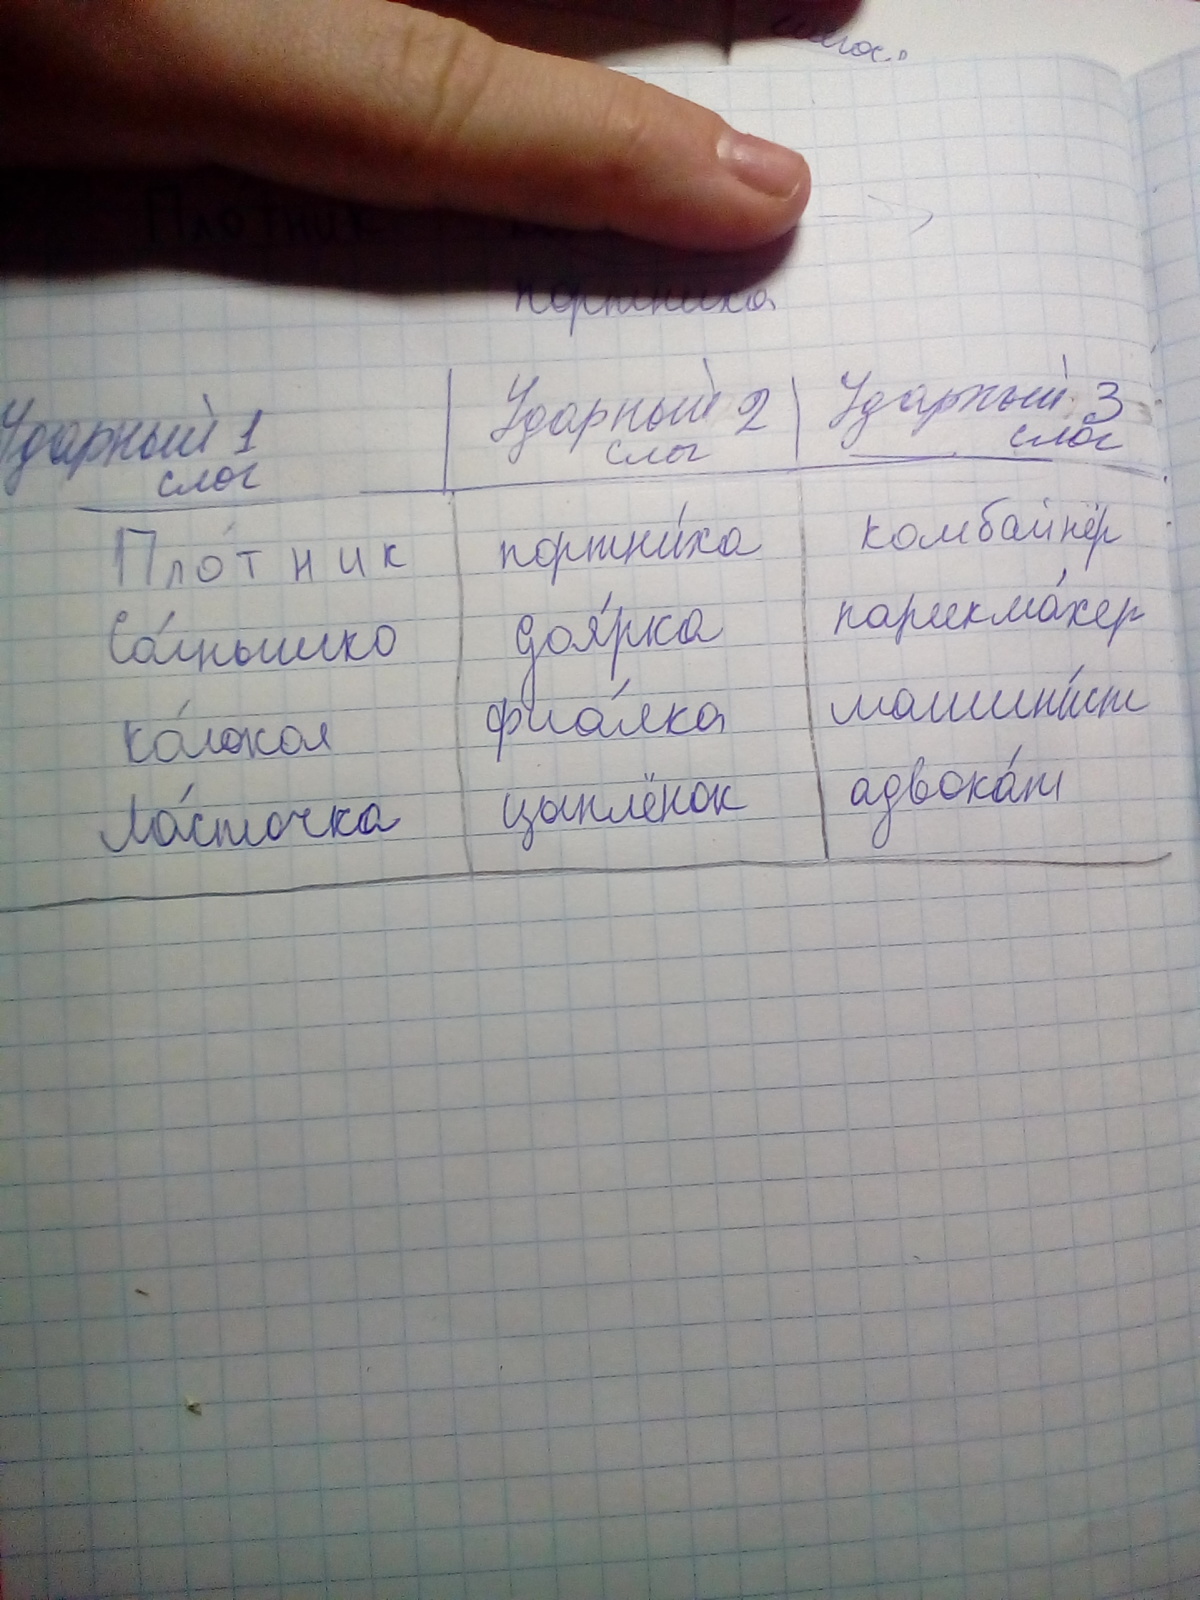 Плотник
портниха
Ударный 1 слог | Ударный 2 слог | Ударный 3 слог
Пло́тник | портни́ха | комбайнёр
доя́рка | парикма́хер
ко́локол | фиа́лка | машини́ст
Ла́сточка | цыплёнок | адвока́т